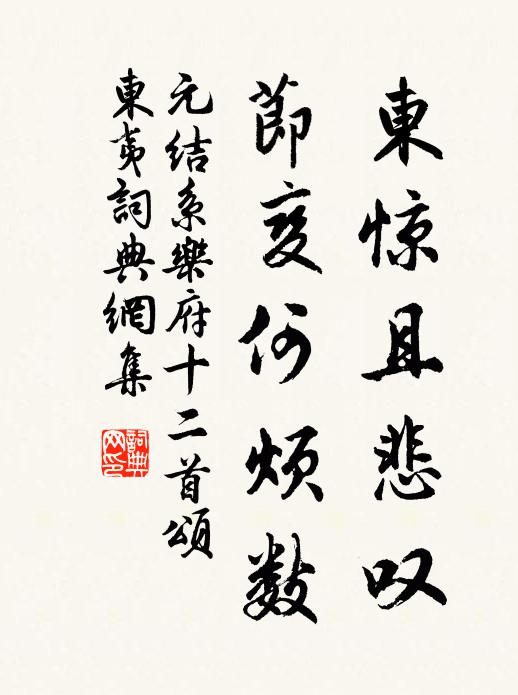 東惊且悲叹
莭变何烦数
元结系樂府十二首頌
東夷詞典網集
詞典
网印